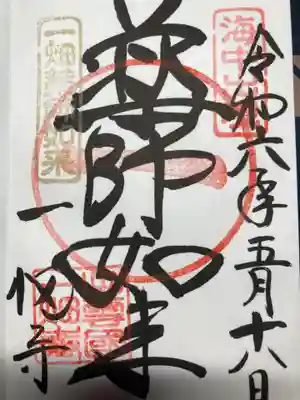 令和六年五月十八日
薬師如来
一畑薬師如来
一畑寺